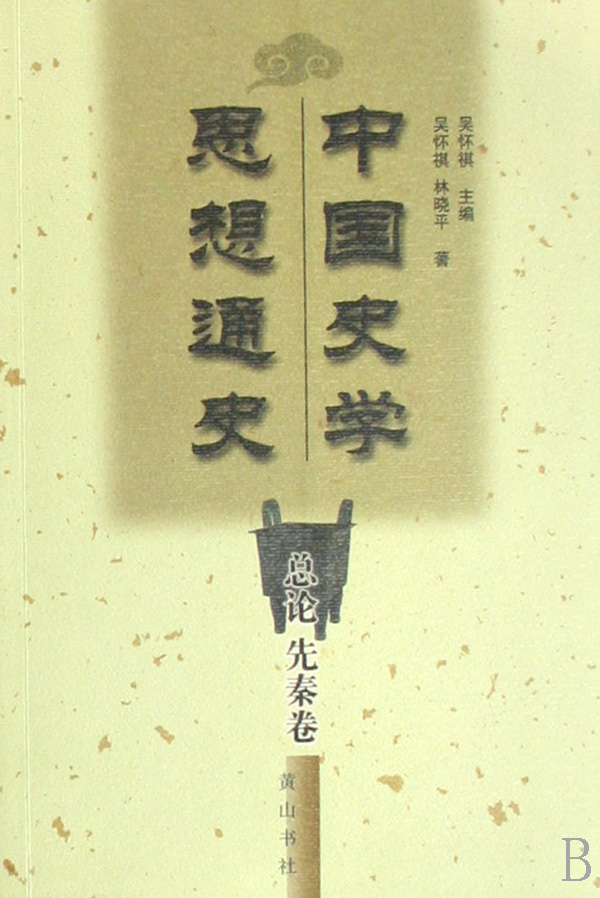 吴怀祺 主编
吴怀祺 林晓平 著
中国史学
思想通史
总论 先秦卷
黄山书社
B